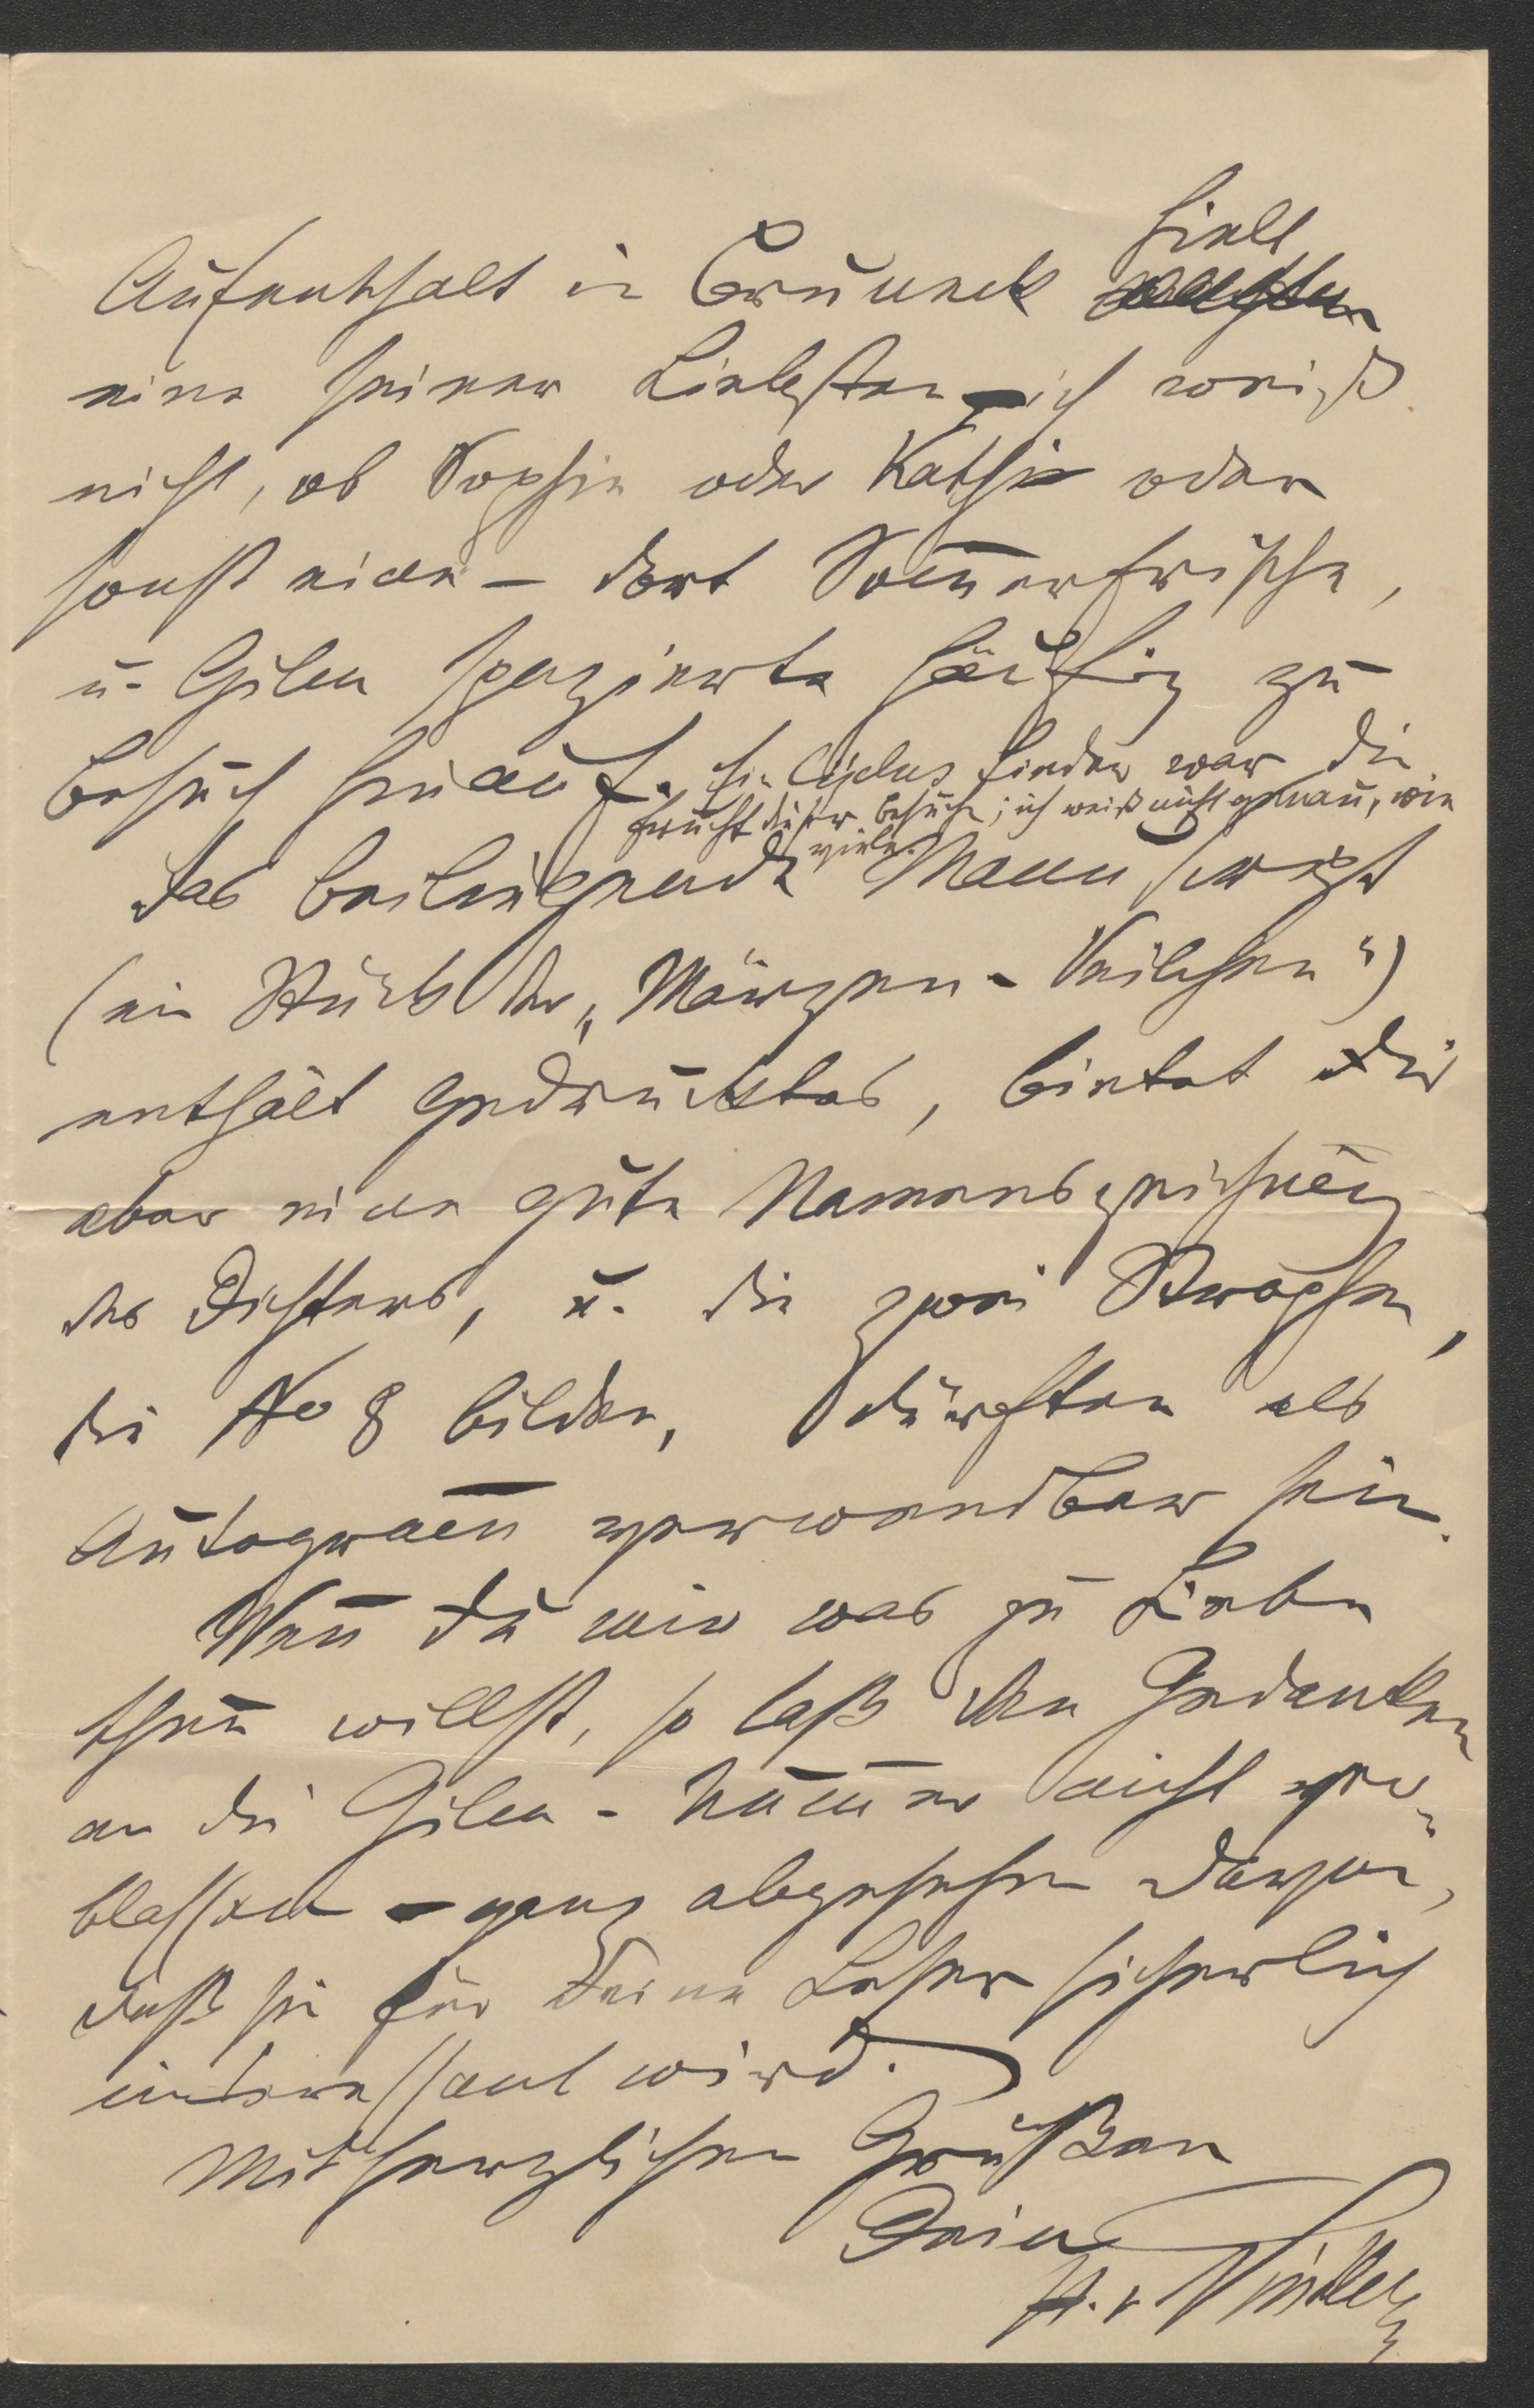 hielt
Aufenthalt in Bruneck
eine seiner Liebsten – ich weiß
nicht, ob Sophie oder Kathi oder
sonst eine – dort Som̅erfrische,
u. Gilm spazierte häufig zu
Besuch hinauf. Ein Cyclus Lieder war die
Frucht dieser Besuche; ich weiß nicht genau, wie
viele.
Das beiliegende Manuscript
(ein Stück der „Märzen-Veilchen“)
enthält Gedrucktes, bietet Dir
aber eine gute Namenszeichnung
des Dichters, u. die zwei Strophen,
die No 8 bilden, dürften als
Autogram̅ verwendbar sein.
Wen̅ Du mir was zu Liebe
thun willst, so laß den Gedanken
an die Gilm-Num̅er nicht ver-
blassen – ganz abgesehen davon,
daß sie für Deine Leser sicherlich
interessant wird.
Mit herzlichen Grüßen
Dein
A. v.